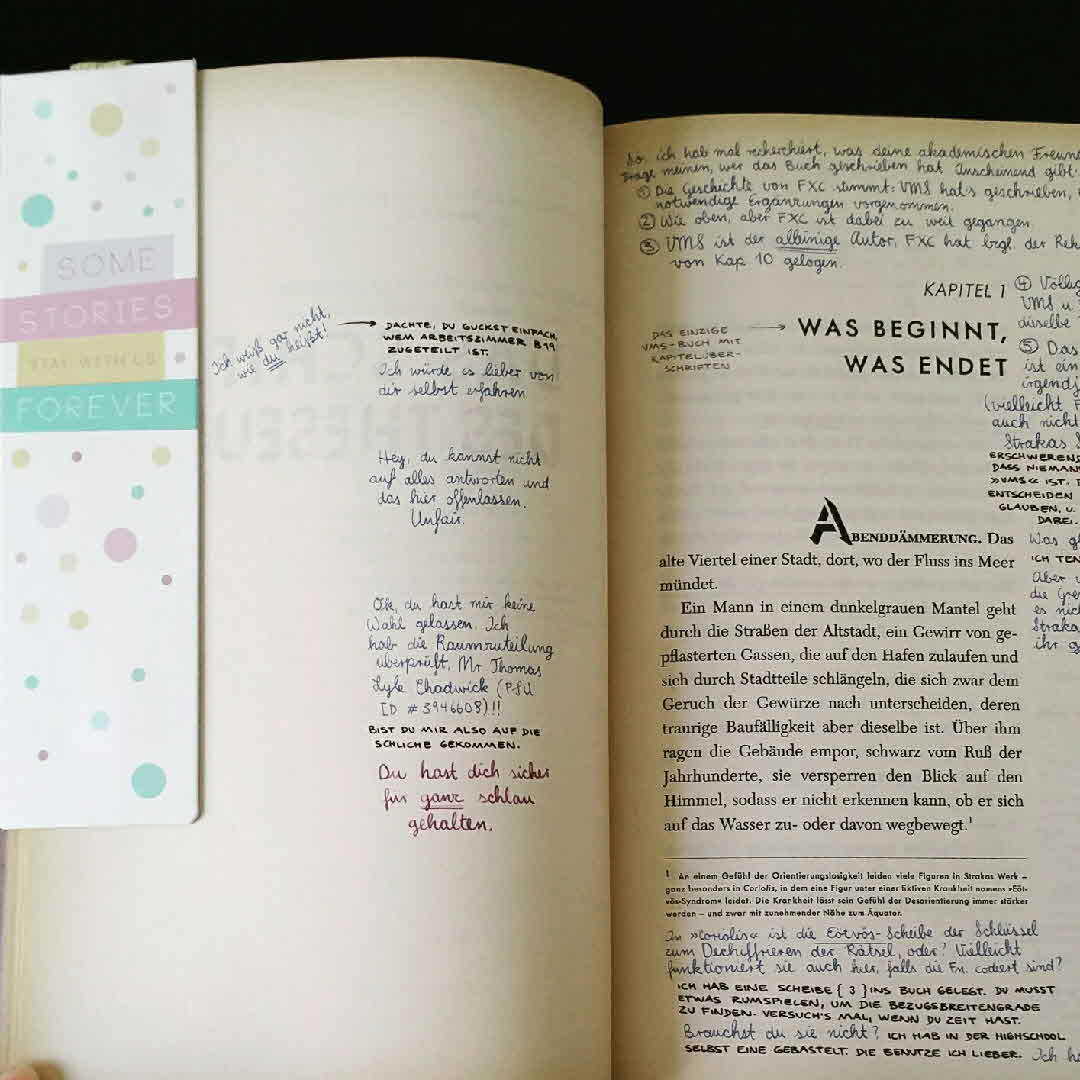 SOME
STORIES
STAY WITH US
FOREVER
Ich weiß gar nicht,
wie du heißt!
DACHTE, DU GUCKST EINFACH,
WEM ARBEITSZIMMER B19
ZUGETEILT IST.
Ich würde es lieber von
dir selbst erfahren
Hey, du kannst nicht
auf alles antworten und
das hier offenlassen.
Unfair.
Ok, du hast mir keine
Wahl gelassen. Ich
hab die Raumzuteilung
überprüft, Mr Thomas
Lyle Chadwick (PSU
ID # 3946608)!!
BIST DU MIR ALSO AUF DIE
SCHLICHE GEKOMMEN.
Du hast dich sicher
für ganz schlau
gehalten.
So, ich hab mal recherchiert, was deine akademischen Freunde
meinen, wer das Buch geschrieben hat Anscheinend gibt's
① Die Geschichte von FXC stimmt: VMS hat's geschrieben,
notwendige Ergänzungen vorgenommen.
② Wie oben, aber FXC ist dabei zu weit gegangen.
③ VMS ist der alleinige Autor, FXC hat bzgl. der
von Kap 10 gelogen.
KAPITEL 1
WAS BEGINNT,
WAS ENDET
DAS EINZIGE
VMS-BUCH MIT
KAPITELÜBER-
SCHRIFTEN
④
VMS u
dieselbe
⑤ Das
ist ein
(vielleicht
auch nicht
Strakas
DASS NIEMAND
»VMS« IST.
ENTSCHEIDEN
GLAUBEN, U.
Was
ICH
Aber
die
es nich
Straka
ihr
ABENDDÄMMERUNG. Das
alte Viertel einer Stadt, dort, wo der Fluss ins Meer
mündet.
Ein Mann in einem dunkelgrauen Mantel geht
durch die Straßen der Altstadt, ein Gewirr von ge-
pflasterten Gassen, die auf den Hafen zulaufen und
sich durch Stadtteile schlängeln, die sich zwar dem
Geruch der Gewürze nach unterscheiden, deren
traurige Baufälligkeit aber dieselbe ist. Über ihm
ragen die Gebäude empor, schwarz vom Ruß der
Jahrhunderte, sie versperren den Blick auf den
Himmel, sodass er nicht erkennen kann, ob er sich
auf das Wasser zu- oder davon wegbewegt.¹
¹ An einem Gefühl der Orientierungslosigkeit leiden viele Figuren in Strakas Werk –
ganz besonders in Coriolis, in dem eine Figur unter einer fiktiven Krankheit namens »Eöt-
vös-Syndrom« leidet. Die Krankheit lässt sein Gefühl der Desorientierung immer stärker
werden – und zwar mit zunehmender Nähe zum Äquator.
In »Coriolis« ist die Eötvös-Scheibe der Schlüssel
zum Dechiffrieren der Rätsel, oder? Vielleicht
funktioniert sie auch hier, falls die Fn. codiert sind?
ICH HAB EINE SCHEIBE { 3 } INS BUCH GELEGT. DU MUSST
ETWAS RUMSPIELEN, UM DIE BEZUGSBREITENGRADE
ZU FINDEN. VERSUCH'S MAL, WENN DU ZEIT HAST.
Brauchst du sie nicht? ICH HAB IN DER HIGHSCHOOL
SELBST EINE GEBASTELT. DIE BENUTZE ICH LIEBER. Ich